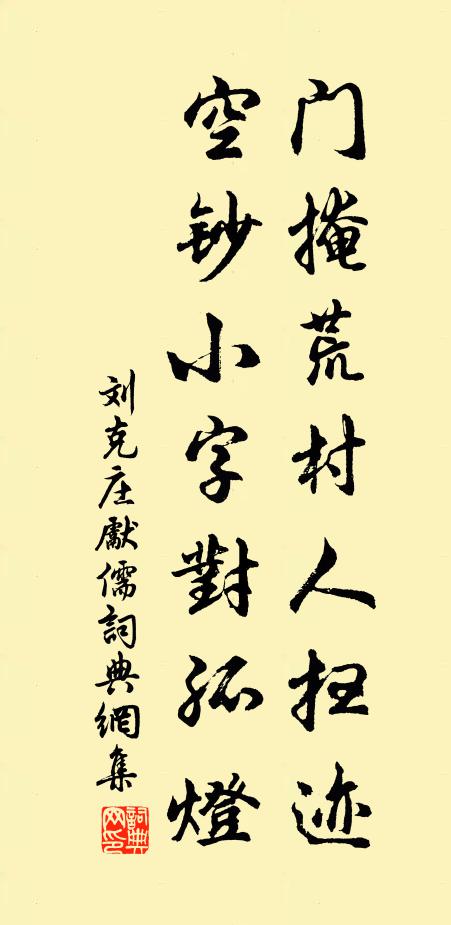 门掩荒村人扫迹
空鈔小字對孤燈
刘克庄獻儒詞典網集
詞典网印